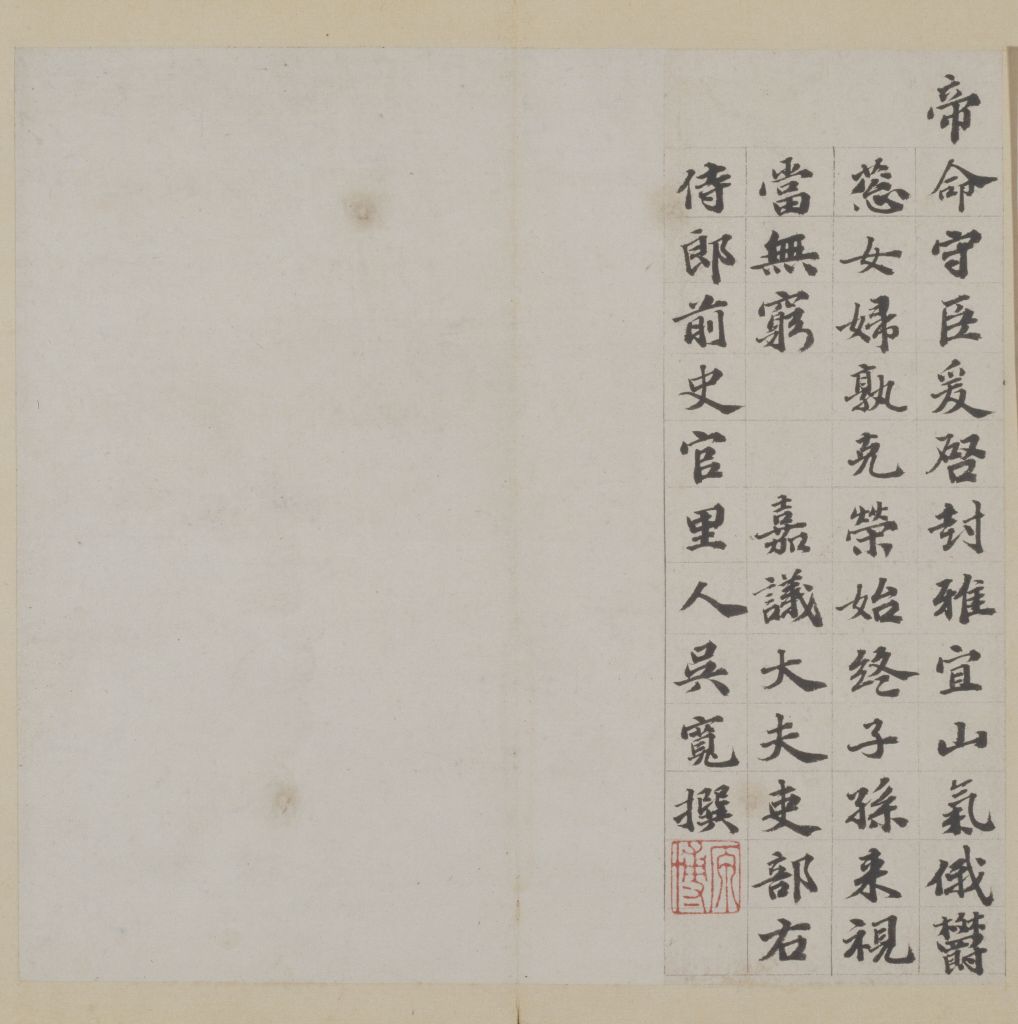 帝命守臣爰啓封雅宜山氣俄鬱
葱女婦孰克榮始終子孫来視
當無窮 嘉議大夫吏部右
侍郎前史官里人吳寬撰
原博